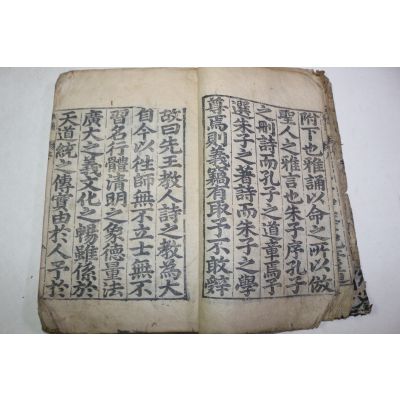 附下也雅誦以命之所以倣
聖人之雅言也朱子序孔子
之刪詩而孔子之道章焉予
選朱子之著詩而朱子之學
尊焉則義竊有取予不敢辭
故曰先王敎人詩之敎爲大
自今以往師無不立士無不
習名行體淸明之象德量法
廣大之義文化之暢雖係於
天道統之傳實由於人予於